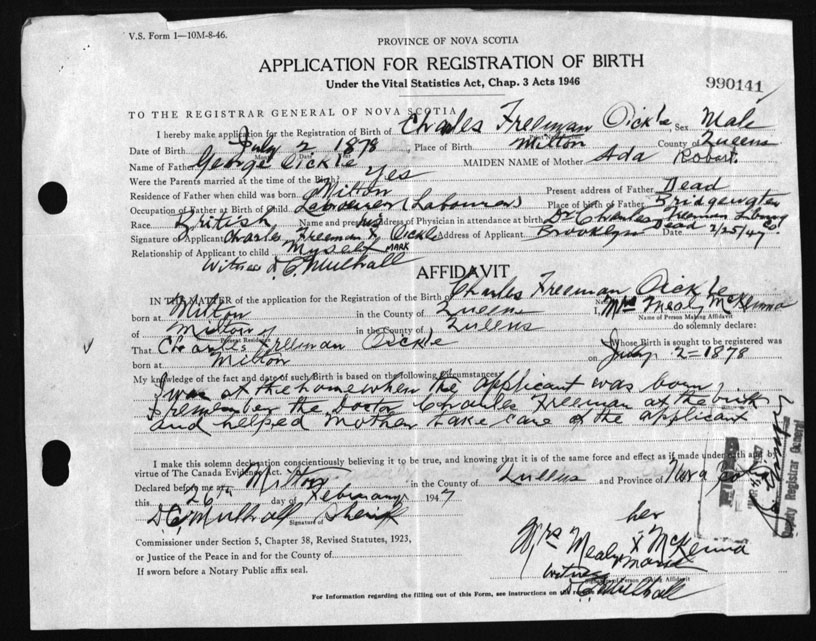 V.S. Form 1—10M-8-46.
PROVINCE OF NOVA SCOTIA
APPLICATION FOR REGISTRATION OF BIRTH
Under the Vital Statistics Act, Chap. 3 Acts 1946
990141
TO THE REGISTRAR GENERAL OF NOVA SCOTIA
I hereby make application for the Registration of Birth of Charles Freeman Dickle, Sex Male
Date of Birth July 2 1878, Place of Birth Milton County of Queens
Name of Father George Dickle MAIDEN NAME of Mother Ada Robert.
Were the Parents married at the time of the Birth? Yes
Residence of Father when child was born Milton Present address of Father Dead
Occupation of Father at Birth of Child (Labourer) Place of birth of Father Bridgewater
Race British Name and present address of Physician in attendance at birth Dr Charles Freeman Co.
Signature of Applicant Charles Freeman his X Dickle Address of Applicant Brooklyn Dead Date 2/25/47
Relationship of Applicant to child Myself MARK
Witness D. C. Mulhall
AFFIDAVIT
IN THE MATTER of the application for the Registration of the Birth of Charles Freeman Dickle
born at Milton in the County of Queens I, Mrs Mealy McKenna
Name of Person Making Affidavit
of Milton in the County of Queens do solemnly declare:
Present Residence
That Charles Freeman Dickle Whose Birth is sought to be registered was
born at Milton on July 2 = 1878
My knowledge of the fact and date of such Birth is based on the following circumstances:
I was at the home when the applicant was born,
I remember the Doctor Charles Freeman at the birth
and helped Mother take care of the applicant
I make this solemn declaration conscientiously believing it to be true, and knowing that it is of the same force and effect as if made under oath and by
virtue of The Canada Evidence Act.
Declared before me at Milton in the County of Queens and Province of Nova Scotia
this 26th day of February 1947
D. C. Mulhall Sheriff
Signature of
her
Commissioner under Section 5, Chapter 38, Revised Statutes, 1923,
Mrs Mealy X McKenna
or Justice of the Peace in and for the County of
mark
If sworn before a Notary Public affix seal.
witness
D. C. Mulhall
For Information regarding the filling out of this Form, see instructions on
Deputy Registrar General